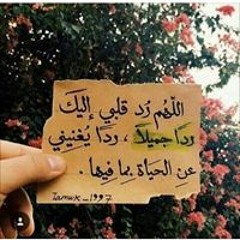 اللّهُم رُد قلبي إليكَ
ردًا جميلاً ، ردًا يُغنيني
عنِ الحَياة بِما فيها .
Tamwk_1997